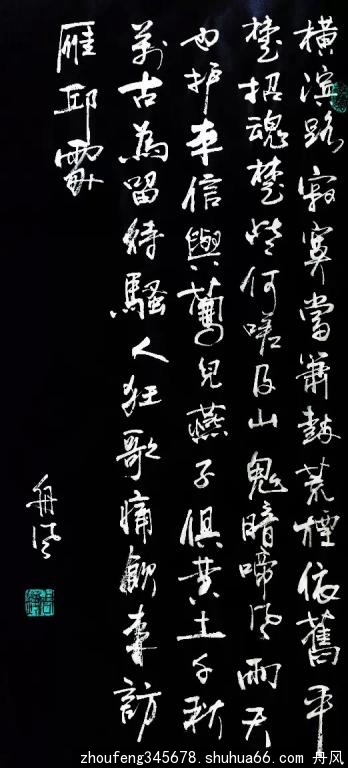 橫滨路寂寞當簫鼓荒煙依舊平
楚招魂楚些何嗟及山鬼暗啼风雨天
也妒未信與鶯兒燕子俱黄土千秋
萬古為留待騷人狂歌痛飲来訪
雁邱處
舟风
zhoufeng345678.shuhua66.com 舟风